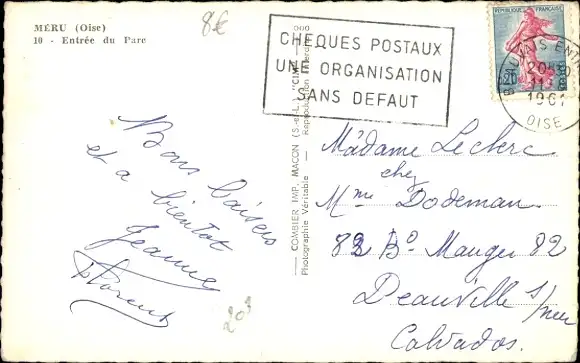 MÉRU (Oise)
10 - Entrée du Parc
8€
CHEQUES POSTAUX
UNE ORGANISATION
SANS DEFAUT
REPUBLIQUE FRANÇAISE
0,20
POSTES
BEAUVAIS ENTREPOT
1961
OISE
COMBIER IMP. MACON (S.-et-L.) "CIM"
Photographie Véritable - Reproduction Interdite
Bons baisers
et a bientot
Jeanne
Florent
203
Madame Leclerc
chez
Mme Dodeman
82 Bd Mauger 82
Deauville s/mer
Calvados.